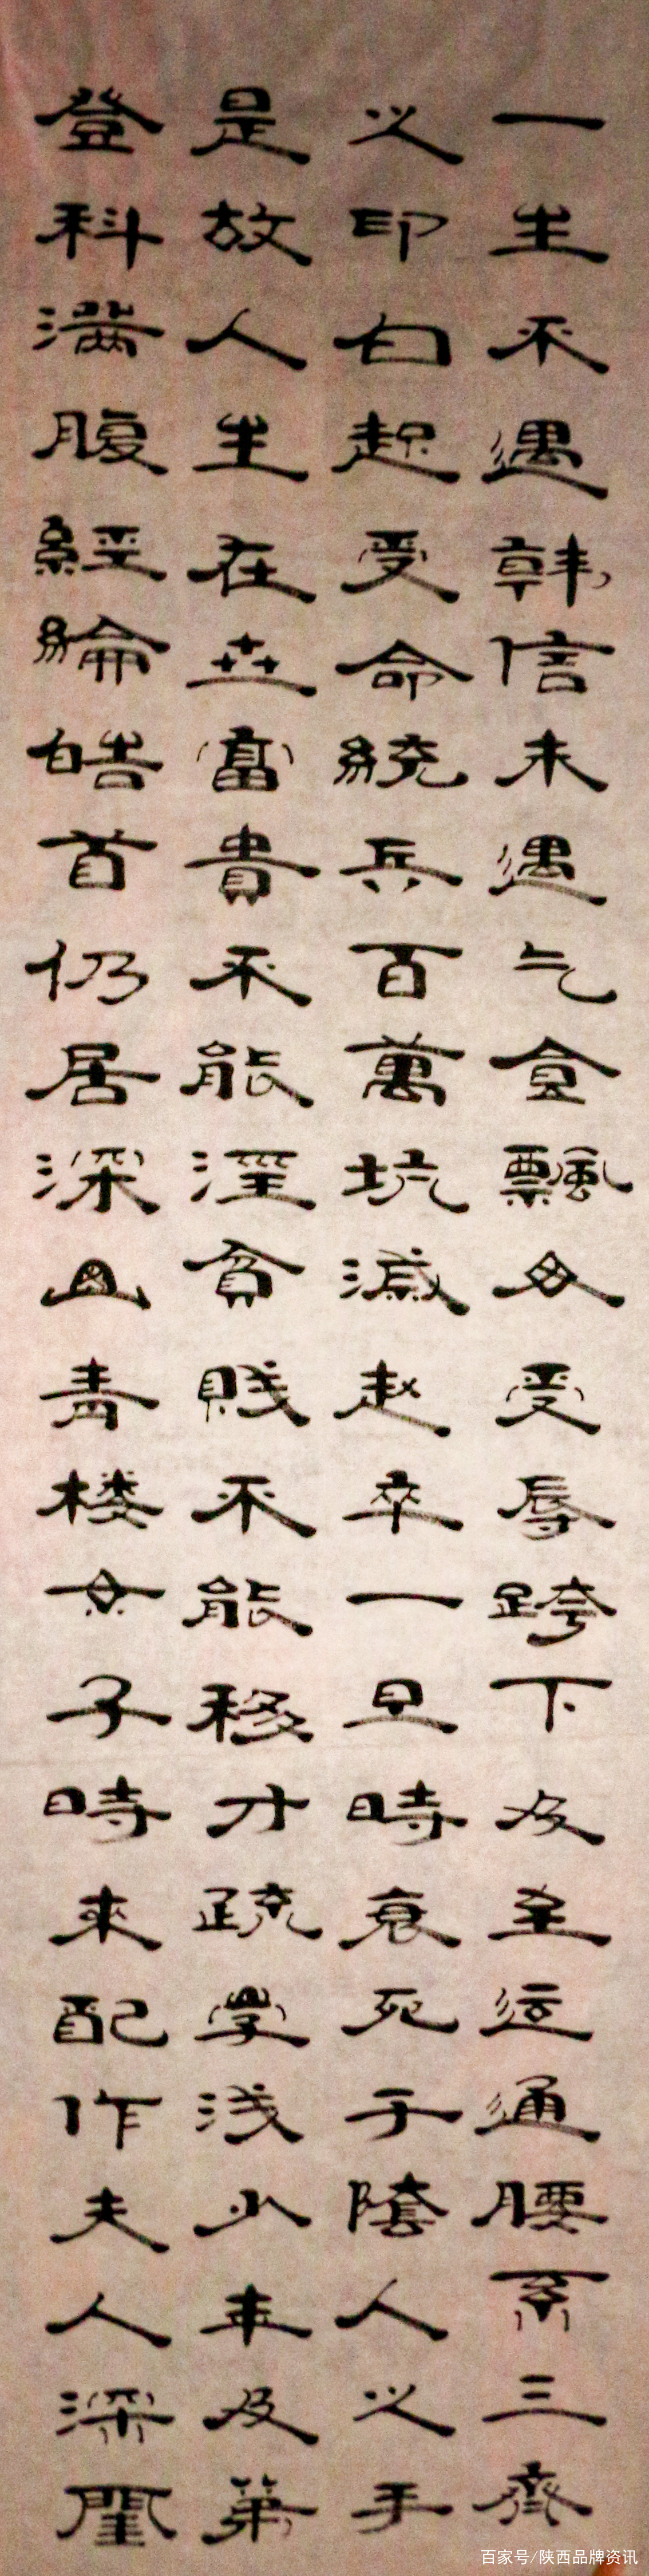 一生不遇韩信未遇乞食飘母受辱跨下及至运通腰系三齊
之印白起受命統兵百萬坑滅赵卒一旦時衰死于陰人之手
是故人生在世富貴不能淫貧賤不能移才疏学浅少年及第
登科满腹經綸皓首仍居深山青楼女子時来配作夫人深闺
百家号/陕西品牌资讯